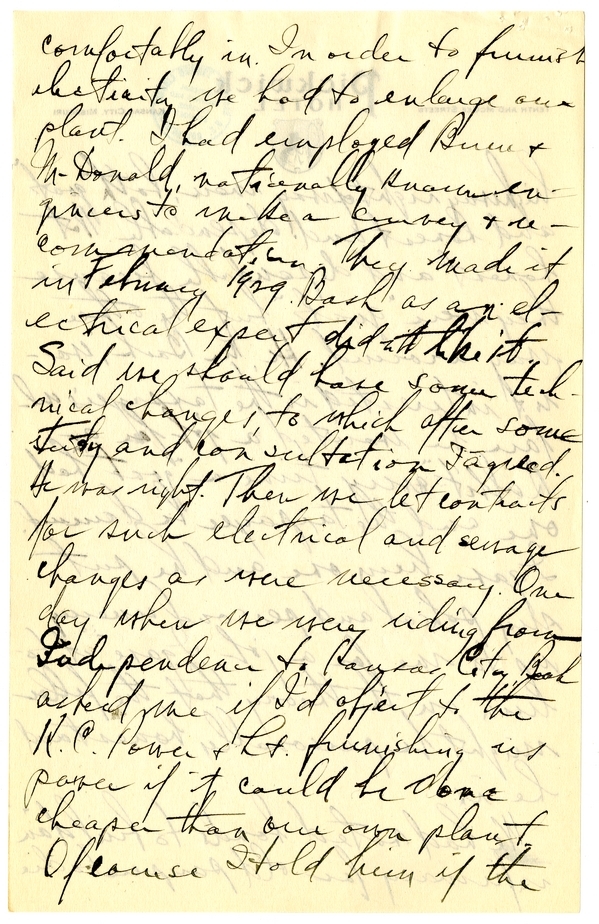 comfortably in. In order to furnish
electricity we had to enlarge our
plant. I had employed Burns &
McDonald, nationally known en-
gineers to make a survey & re-
commendation. They made it
in February 1929. Bash as an el-
ectrical expert didn't like it.
Said we should have some tech-
nical changes, to which after some
study and consultation I agreed.
He was right. Then we let contracts
for such electrical and sewage
changes as were necessary. One
day when we were riding from
Independence to Kansas City Bash
asked me if I'd object to the
K.C. Power & Lt. furnishing us
power if it could be done
cheaper than our own plant.
Of course I told him if the